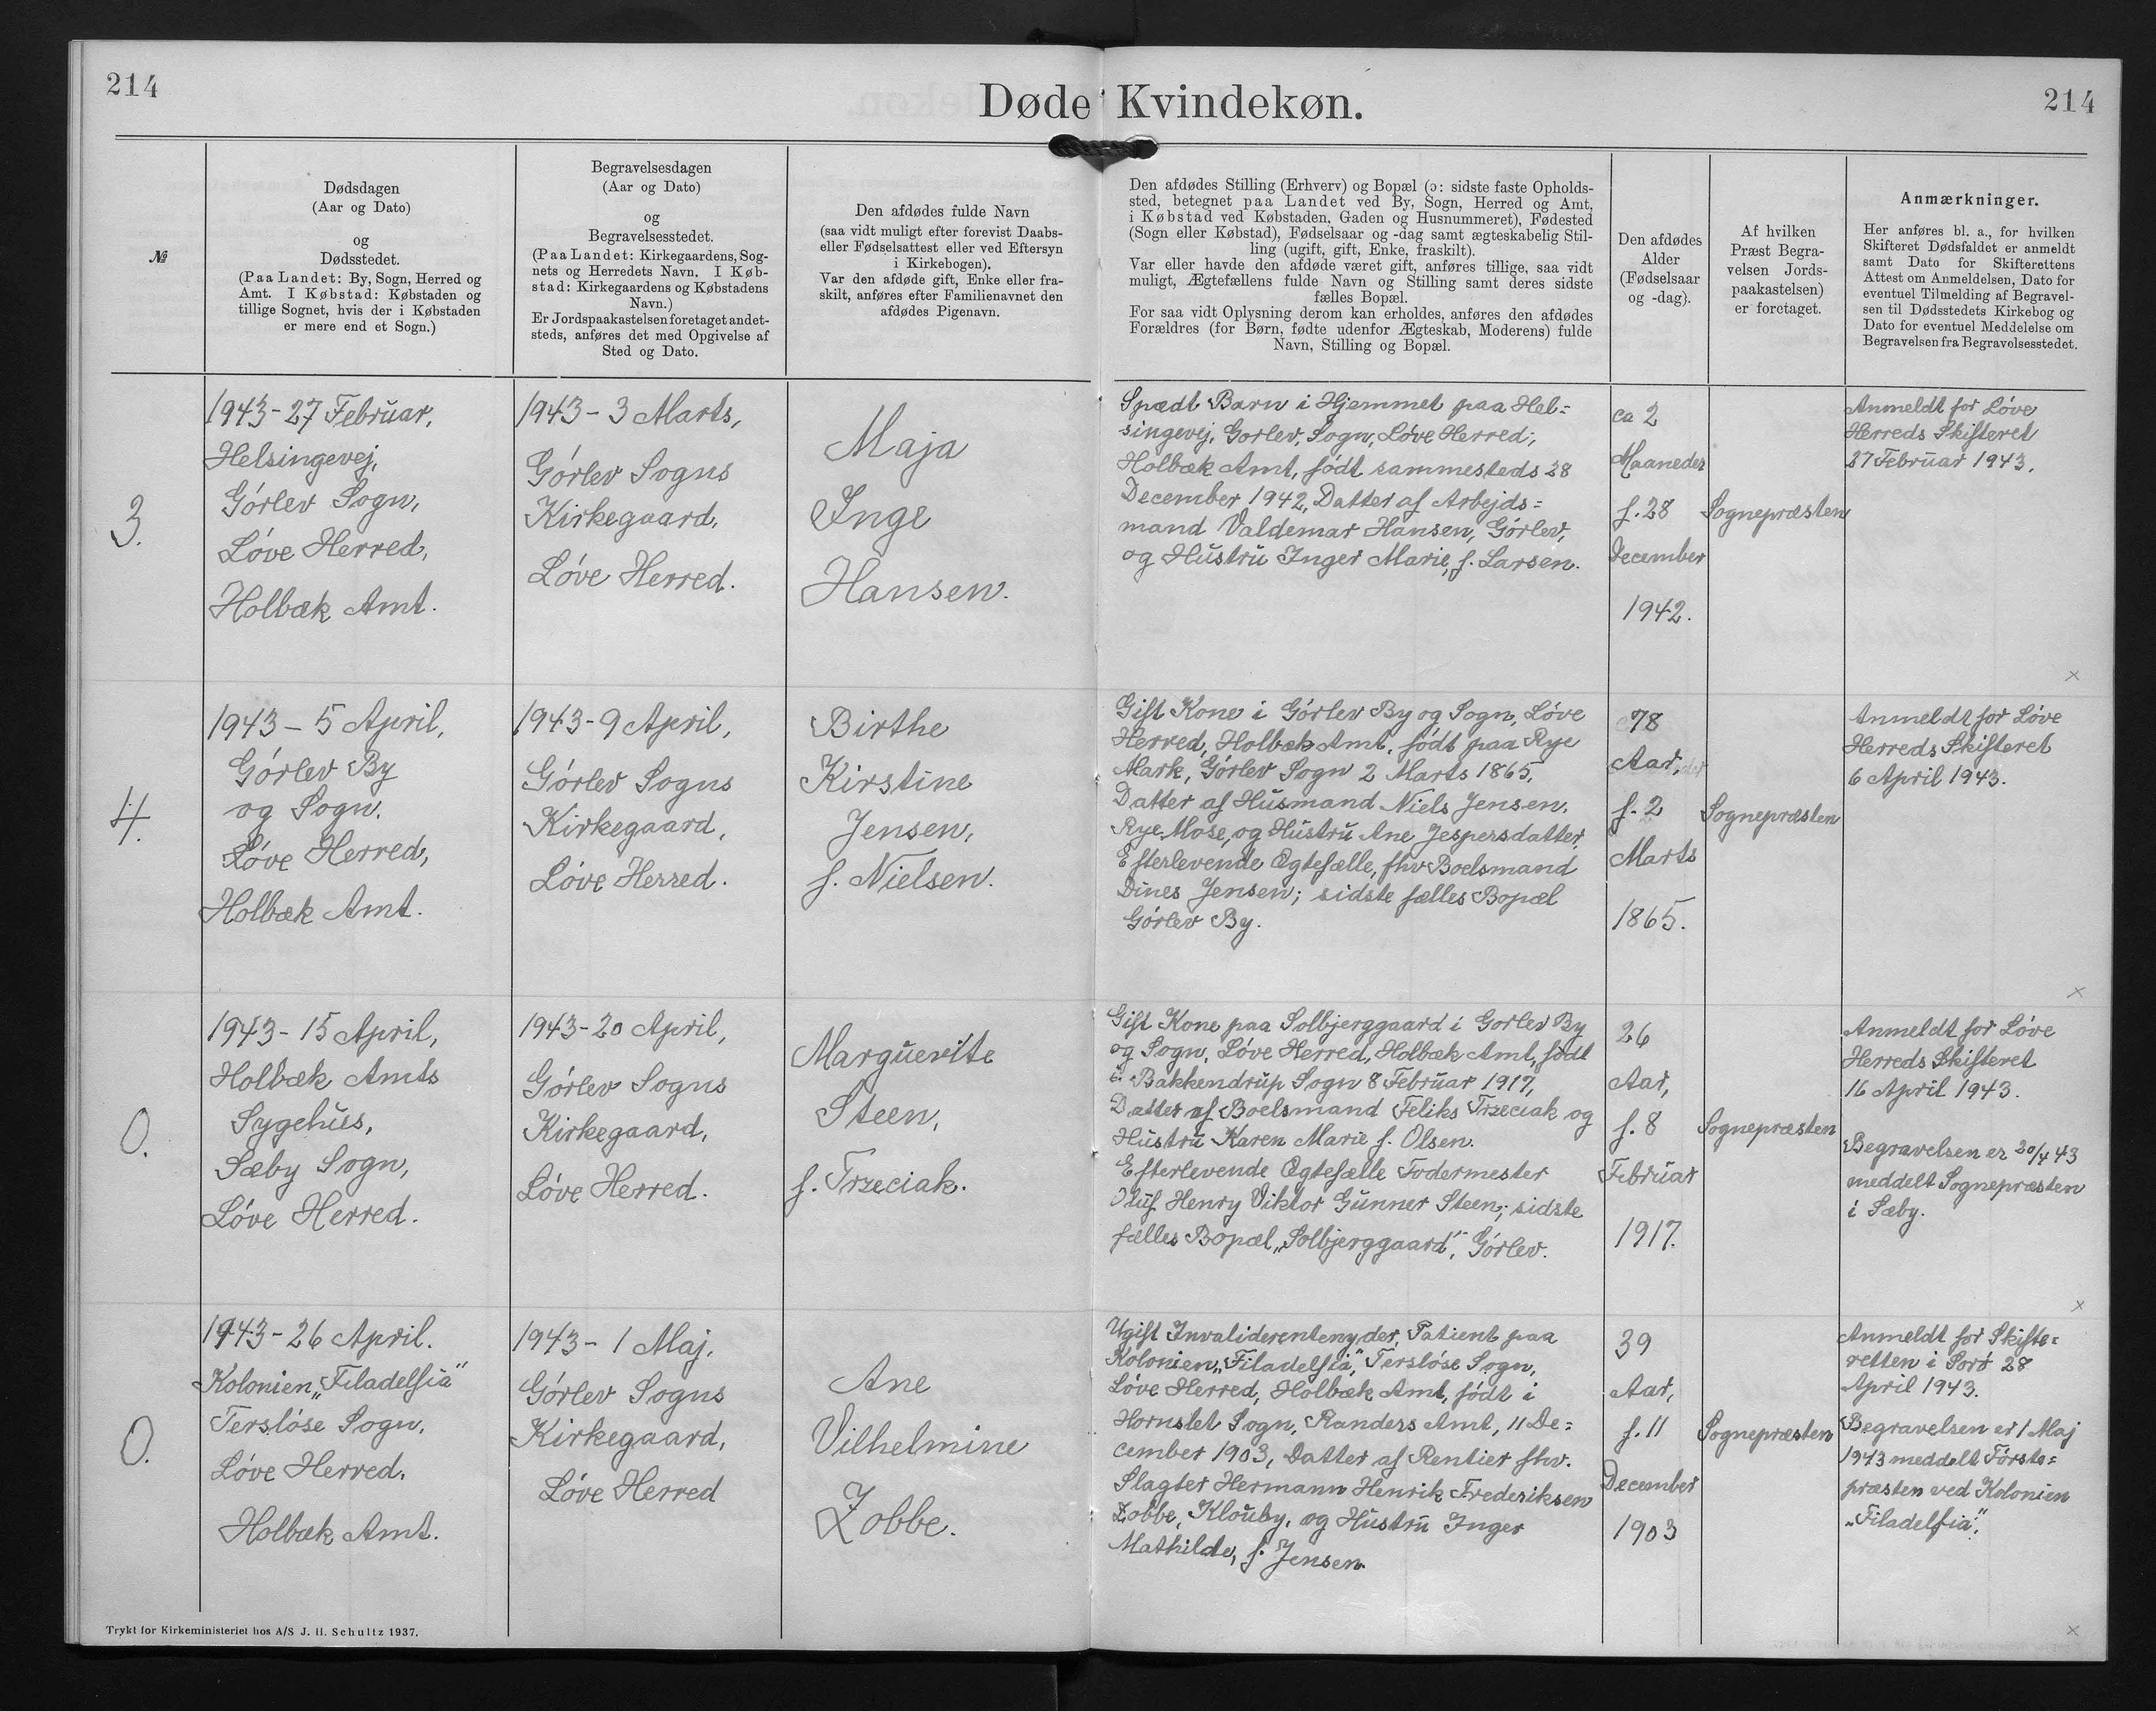 214
Døde Kvindekøn.
214
№
Dødsdagen
(Aar og Dato)
og
Dødsstedet.
(Paa Landet: By, Sogn, Herred og
Amt. I Købstad: Købstaden og
tillige Sognet, hvis der i Købstaden
er mere end et Sogn.)
Begravelsesdagen
(Aar og Dato)
og
Begravelsesstedet.
(Paa Landet: Kirkegaardens, Sog-
nets og Herredets Navn. I Køb-
stad: Kirkegaardens og Købstadens
Navn.)
Er Jordspaakastelsen foretaget andet-
steds, anføres det med Opgivelse af
Sted og Dato.
Den afdødes fulde Navn
(saa vidt muligt efter forevist Daabs-
eller Fødselsattest eller ved Eftersyn
i Kirkebogen).
Var den afdøde gift, Enke eller fra-
skilt, anføres efter Familienavnet den
afdødes Pigenavn.
Den afdødes Stilling (Erhverv) og Bopæl (ɔ: sidste faste Opholds-
sted, betegnet paa Landet ved By, Sogn, Herred og Amt,
i Købstad ved Købstaden, Gaden og Husnummeret), Fødested
(Sogn eller Købstad), Fødselsaar og -dag samt ægteskabelig Stil-
ling (ugift, gift, Enke, fraskilt).
Var eller havde den afdøde været gift, anføres tillige, saa vidt
muligt, Ægtefællens fulde Navn og Stilling samt deres sidste
fælles Bopæl.
For saa vidt Oplysning derom kan erholdes, anføres den afdødes
Forældres (for Børn, fødte udenfor Ægteskab, Moderens) fulde
Navn, Stilling og Bopæl.
Den afdødes
Alder
(Fødselsaar
og -dag).
Af hvilken
Præst Begra-
velsen (Jords-
paakastelsen)
er foretaget.
Anmærkninger.
Her anføres bl. a., for hvilken
Skifteret Dødsfaldet er anmeldt
samt Dato for Skifterettens
Attest om Anmeldelsen, Dato for
eventuel Tilmelding af Begravel-
sen til Dødsstedets Kirkebog og
Dato for eventuel Meddelelse om
Begravelsen fra Begravelsesstedet.
3.
1943-27 Februar,
Helsingevej,
Görlev Sogn,
Löve Herred,
Holbæk Amt.
1943-3 Marts,
Görlev Sogns
Kirkegaard,
Löve Herred.
Maja
Inge
Hansen.
Spædt Barn i Hjemmet paa Hel=
singevej, Gorlev, Sogn, Löve Herred,
Holbæk Amt, født sammesteds 28
December 1942, Datter af Arbejds=
mand Valdemar Hansen, Görlev,
og Hustru Inger Marie, f. Larsen.
ca 2
Maaneder
f. 28
December
1942.
Sognepræsten
Anmeldt for Löve
Herreds Skifteret
27 Februar 1943.
4.
1943-5 April,
Görlev By
og Sogn,
Löve Herred,
Holbæk Amt.
1943-9 April,
Görlev Sogns
Kirkegaard,
Löve Herred.
Birthe
Kirstine
Jensen,
f. Nielsen.
Gift Kone i Görlev By og Sogn, Löve
Herred, Holbæk Amt, født paa Rye
Mark, Görlev Sogn 2 Marts 1865,
Datter af Husmand Niels Jensen,
Rye Mose, og Hustru Ane Jespersdatter,
Efterlevende Ægtefælle, fhv Boelsmand
Dines Jensen; sidste fælles Bopæl
Görlev By.
78
Aar,
f. 2
Marts
1865.
Sognepræsten
Anmeldt for Löve
Herreds Skifteret
6 April 1943.
0.
1943-15 April,
Holbæk Amts
Sygehus,
Sæby Sogn,
Löve Herred.
1943-20 April,
Görlev Sogns
Kirkegaard,
Löve Herred.
Marguerite
Steen,
f. Trzeciak.
Gift Kone paa Solbjerggaard i Gorlev By
og Sogn, Löve Herred, Holbæk Amt, født
i Bakkendrup Sogn 8 Februar 1917,
Datter af Boelsmand Feliks Trzeciak og
Hustru Karen Marie f. Olsen.
Efterlevende Ægtefælle Fodermester
Oluf Henry Viktor Gunner Steen; sidste
fælles Bopæl „Solbjerggaard", Görlev.
26
Aar,
f. 8
Februar
1917.
Sognepræsten
Anmeldt for Löve
Herreds Skifteret
16 April 1943.
Begravelsen er 20/4 43
meddelt Sognepræsten
i Sæby.
0.
1943-26 April.
Kolonien „Filadelfia"
Terslöse Sogn,
Löve Herred,
Holbæk Amt.
1943-1 Maj,
Görlev Sogns
Kirkegaard,
Löve Herred
Ane
Vilhelmine
Zobbe.
Ugift Invaliderentenyder, Patient paa
Kolonien „Filadelfia", Terslöse Sogn,
Löve Herred, Holbæk Amt, født i
Hornslet Sogn, Randers Amt, 11 De=
cember 1903, Datter af Rentier fhv.
Slagter Hermann Henrik Frederiksen
Zobbe, Klouby, og Hustru Inger
Mathilde, f. Jensen.
39
Aar,
f. 11
December
1903
Sognepræsten
Anmeldt for Skifte=
retten i Sorö 28
April 1943.
Begravelsen er 1 Maj
1943 meddelt Förste=
præsten ved Kolonien
„Filadelfia".
Trykt for Kirkeministeriet hos A/S J. H. Schultz 1937.